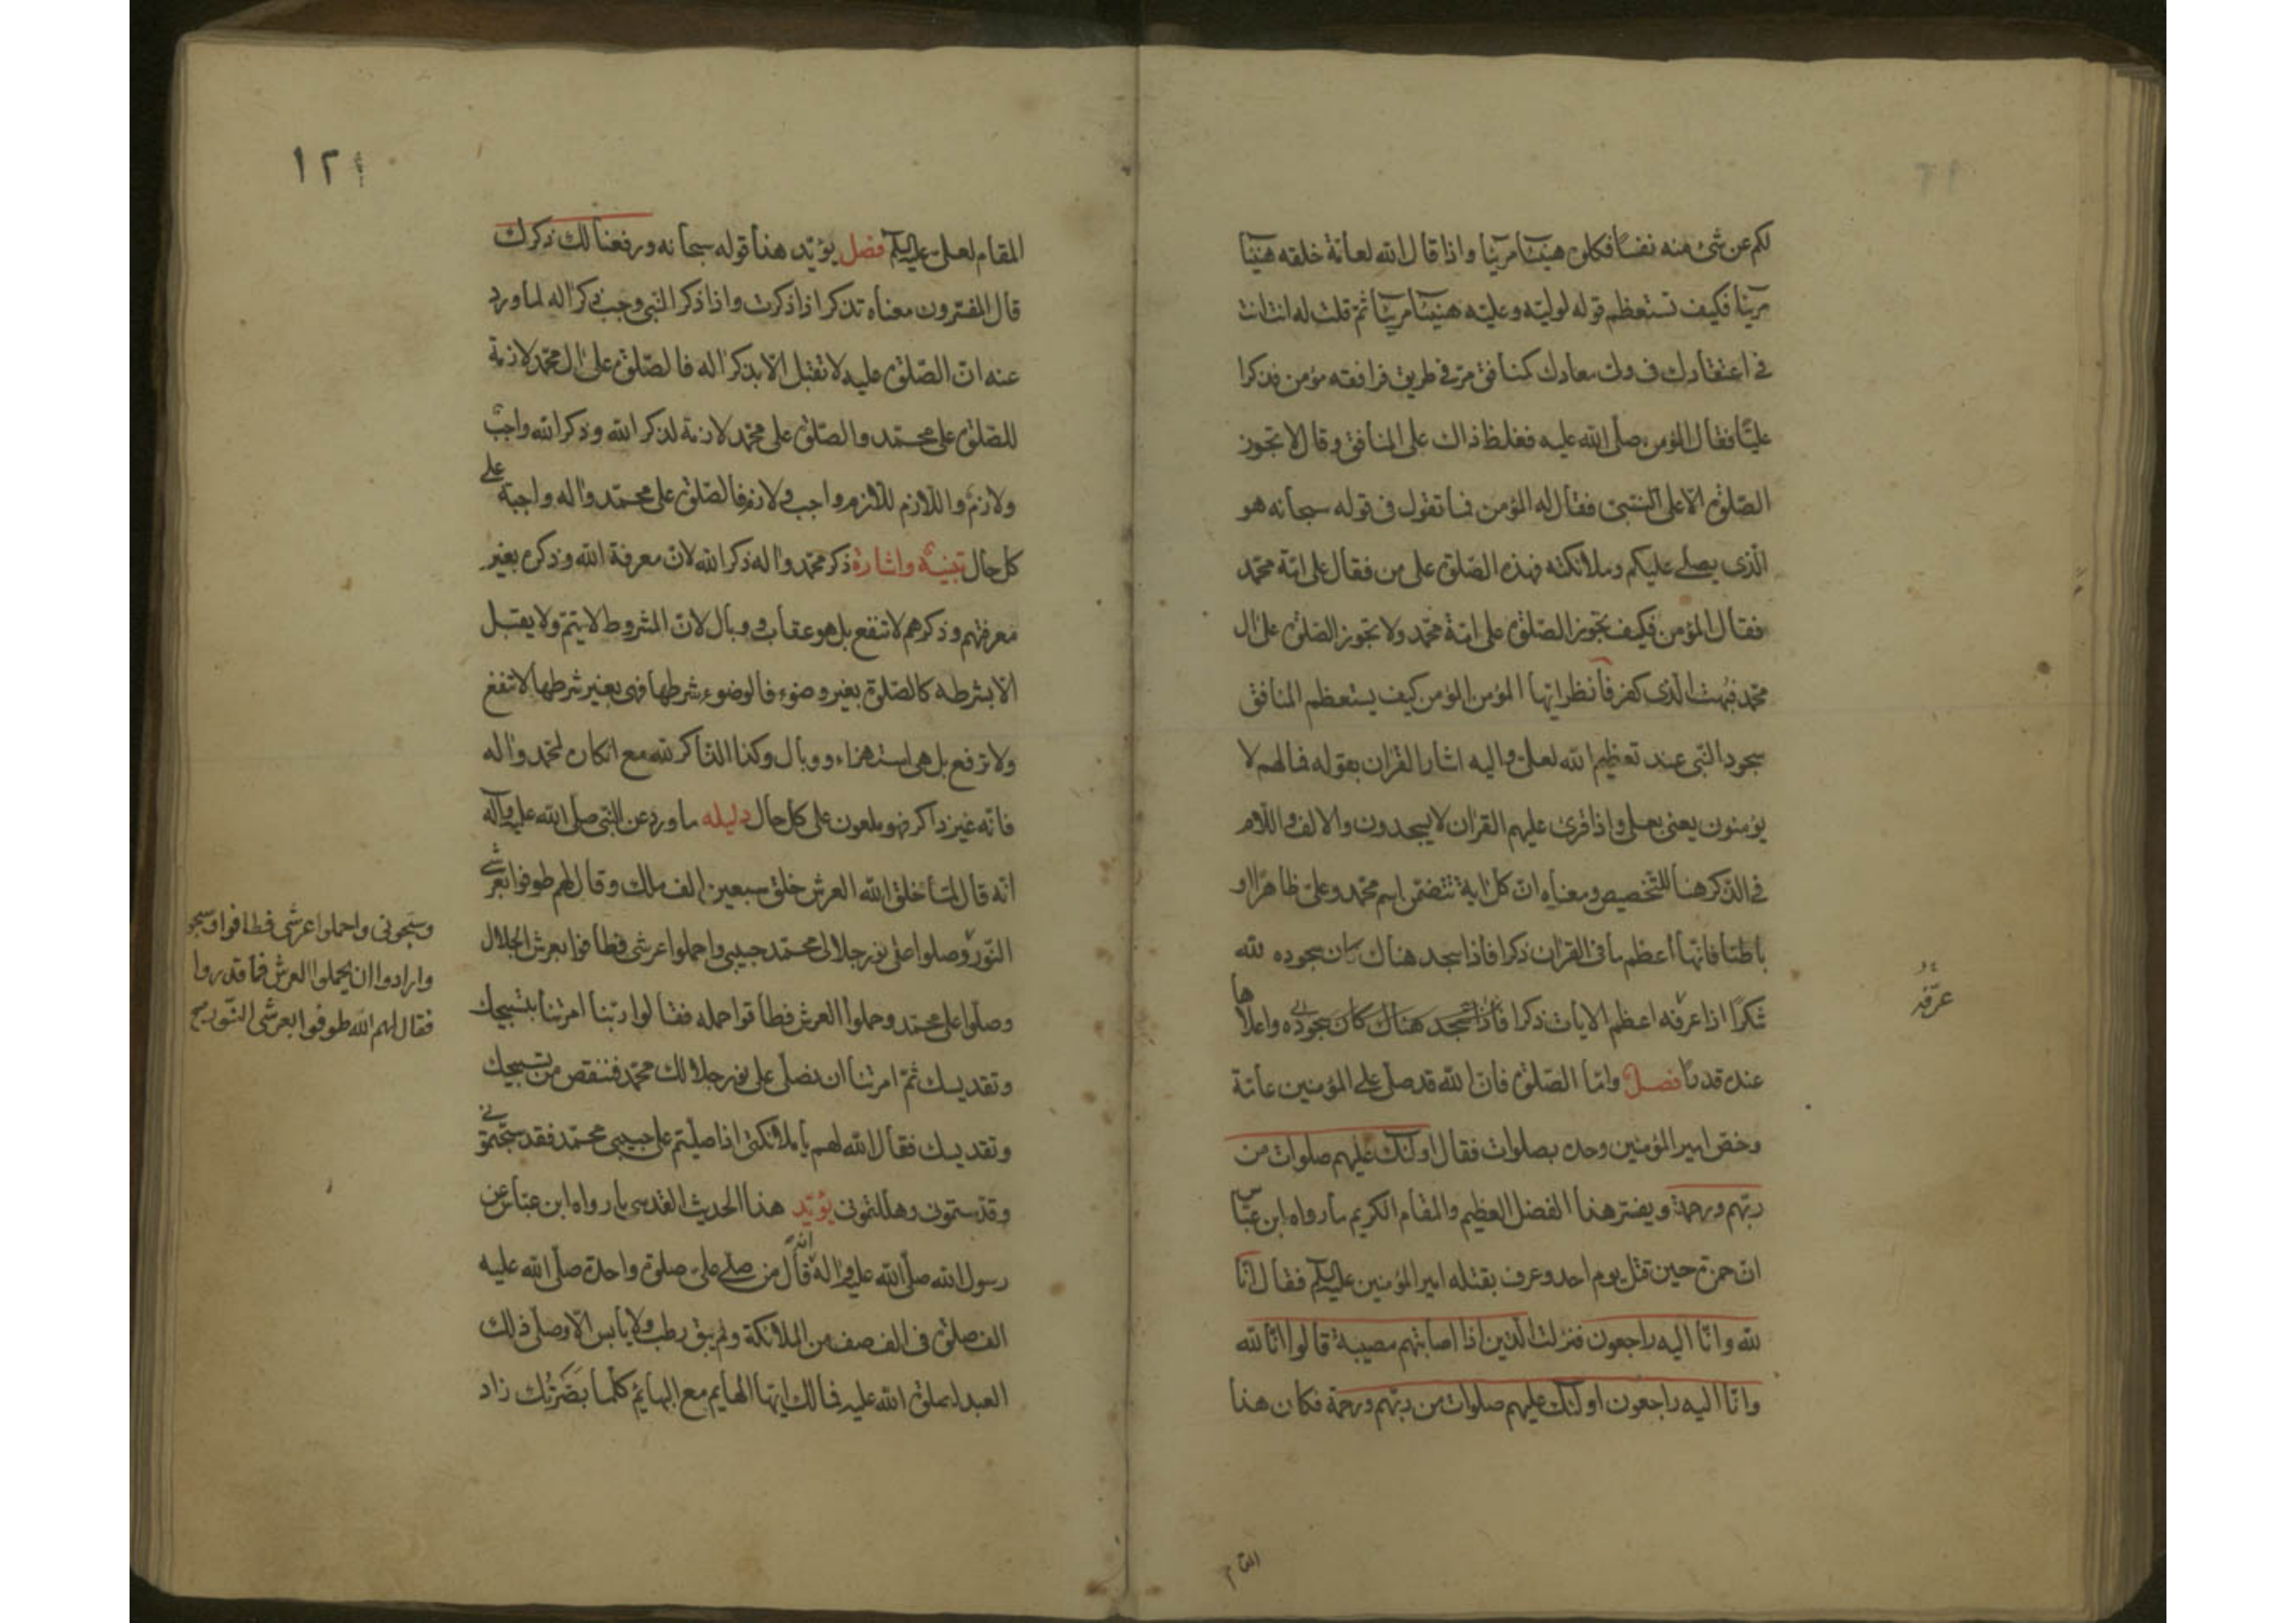 لكم عن شئ منه نفسًا فكلوه هنيئا مريئا واذا قال الله لعامّة خلقه هنيئا
مريئا فكيف تستعظم قوله لوليّه وعليّه هنيئا مريئا ثمّ قلت له انت انت
في اعتقادك ف معادك كمنافق مرّ في طريق فرافقه مؤمن فذكرا
عليّا فقال المؤمن صلّى الله عليه فغلظ ذاك على المنافق وقال لا تجوز
الصّلوة الّا على النّبيّ فقال له المؤمن فما تقول في قوله سبحانه هو
الّذى يصلى عليكم وملائكته فهذه الصّلوة على من فقال على امّة محمّد
فقال المؤمن فكيف تجوز الصّلوة على امّة محمّد ولا تجوز الصّلوة على ال
محمّد فبهت الّذى كفر فانظر ايّها المؤمن المؤمن كيف يستعظم المنافق
سجود النّبى عند تعظيم الله لعلىّ واليه اشار القران بقوله فما لهم لا
يؤمنون يعنى بعلى واذا قرئ عليهم القران لا يسجدون والالف واللّام
في الذكر هنا للتّخصيص ومعناه انّ كل اية تتضمّن اسم محمّد وعلىّ ظاهرًا او
باطنا فانّها أعظم ما فى القران ذكرا فاذا سجد هناك كان سجوده لله
شكرًا اذا عرفه اعظم الايات ذكرا فاذا سجد هناك كان سجوده واعلاها
عنده قدرًا فصل وامّا الصّلوة فانّ الله قد صلّى على المؤمنين عامّة
وخصّ امير المؤمنين وحده بصلوات فقال اولئك عليهم صلوات من
ربّهم ورحمة ويفسّر هذا الفضل العظيم والمقام الكريم ما رواه ابن عبّاس
انّ حمزة حين قتل يوم احد وعرف بقتله امير المؤمنين عليه السلم فقال انّا
لله وانّا اليه راجعون فنزلت الّذين اذا اصابتهم مصيبة قالوا انّا لله
وانّا اليه راجعون اولئك عليهم صلوات من ربّهم ورحمة فكان هذا
عرّفه
١٢١
المقام لعلىّ عليه السلم فصل يؤيّد هذا قوله سبحانه ورفعنا لك ذكرك
قال المفسّرون معناه تذكر اذا ذكرت واذا ذكر النّبى وجب ذكر اله لما ورد
عنه انّ الصّلوة عليه لا تقبل الّا بذكر اله فالصّلوة على ال محمّد لازمة
للصّلوة على محمّد والصّلوة على محمّد لازمة لذكر الله وذكر الله واجبٌ
ولازم واللّازم للّازم واجب ولازم فالصّلوة على محمّد واله واجبة على
كل حال تنبيه واشارة ذكر محمّد واله ذكر الله لانّ معرفة الله وذكره بغير
معرفتهم وذكرهم لا تنفع بل هو عقاب ووبال لانّ المشروط لا يتمّ ولا يقبل
الّا بشرطه كالصّلوة بغير وضوء فالوضوء شرطها فهى بغير شرطها لا تنفع
ولا ترفع بل هى استهزاء ووبال وكذا الذّاكر لله مع انكاره لمحمّد واله
فانّه غير ذاكر فهو ملعون على كل حال دليله ما ورد عن النّبى صلّى الله عليه وآله
انّه قال لمّا خلق الله العرش خلق سبعين الف ملك وقال لهم طوفوا بعرش
النّور وصلوا على نور جلالى محمّد حبيبى واحملوا عرشى فطافوا بعرش الجلال
وصلّوا على محمّد وحملوا العرش فطاقوا حمله فقالوا ربّنا امرتنا بتسبيحك
وتقديسك ثمّ امرتنا ان نصلّى على نور جلالك محمّد فننقص من تسبيحك
وتقديسك فقال الله لهم يا ملائكتى اذا صلّيتم على حبيبى محمّد فقد سبّحتمونى
وقدّستمونى وهلّلتمونى يؤيّد هذا الحديث القدسى ما رواه ابن عبّاس عن
رسول الله صلّى الله عليه واله انّه قال من صلى علىّ صلوة واحدة صلّى الله عليه
الف صلوة فى الف صف من الملائكة ولم يبق رطب ولا يابس الّا وصلّى ذلك
العبد لصلوة الله عليه فما لك ايّها الهايم مع البهائم كلّما بصّرتك زاد
وسبّحونى واحملوا عرشى فطافوا وسبحو
وارادوا ان يحملوا العرش فما قدروا
فقال لهم الله طوفوا بعرشى النّور صح